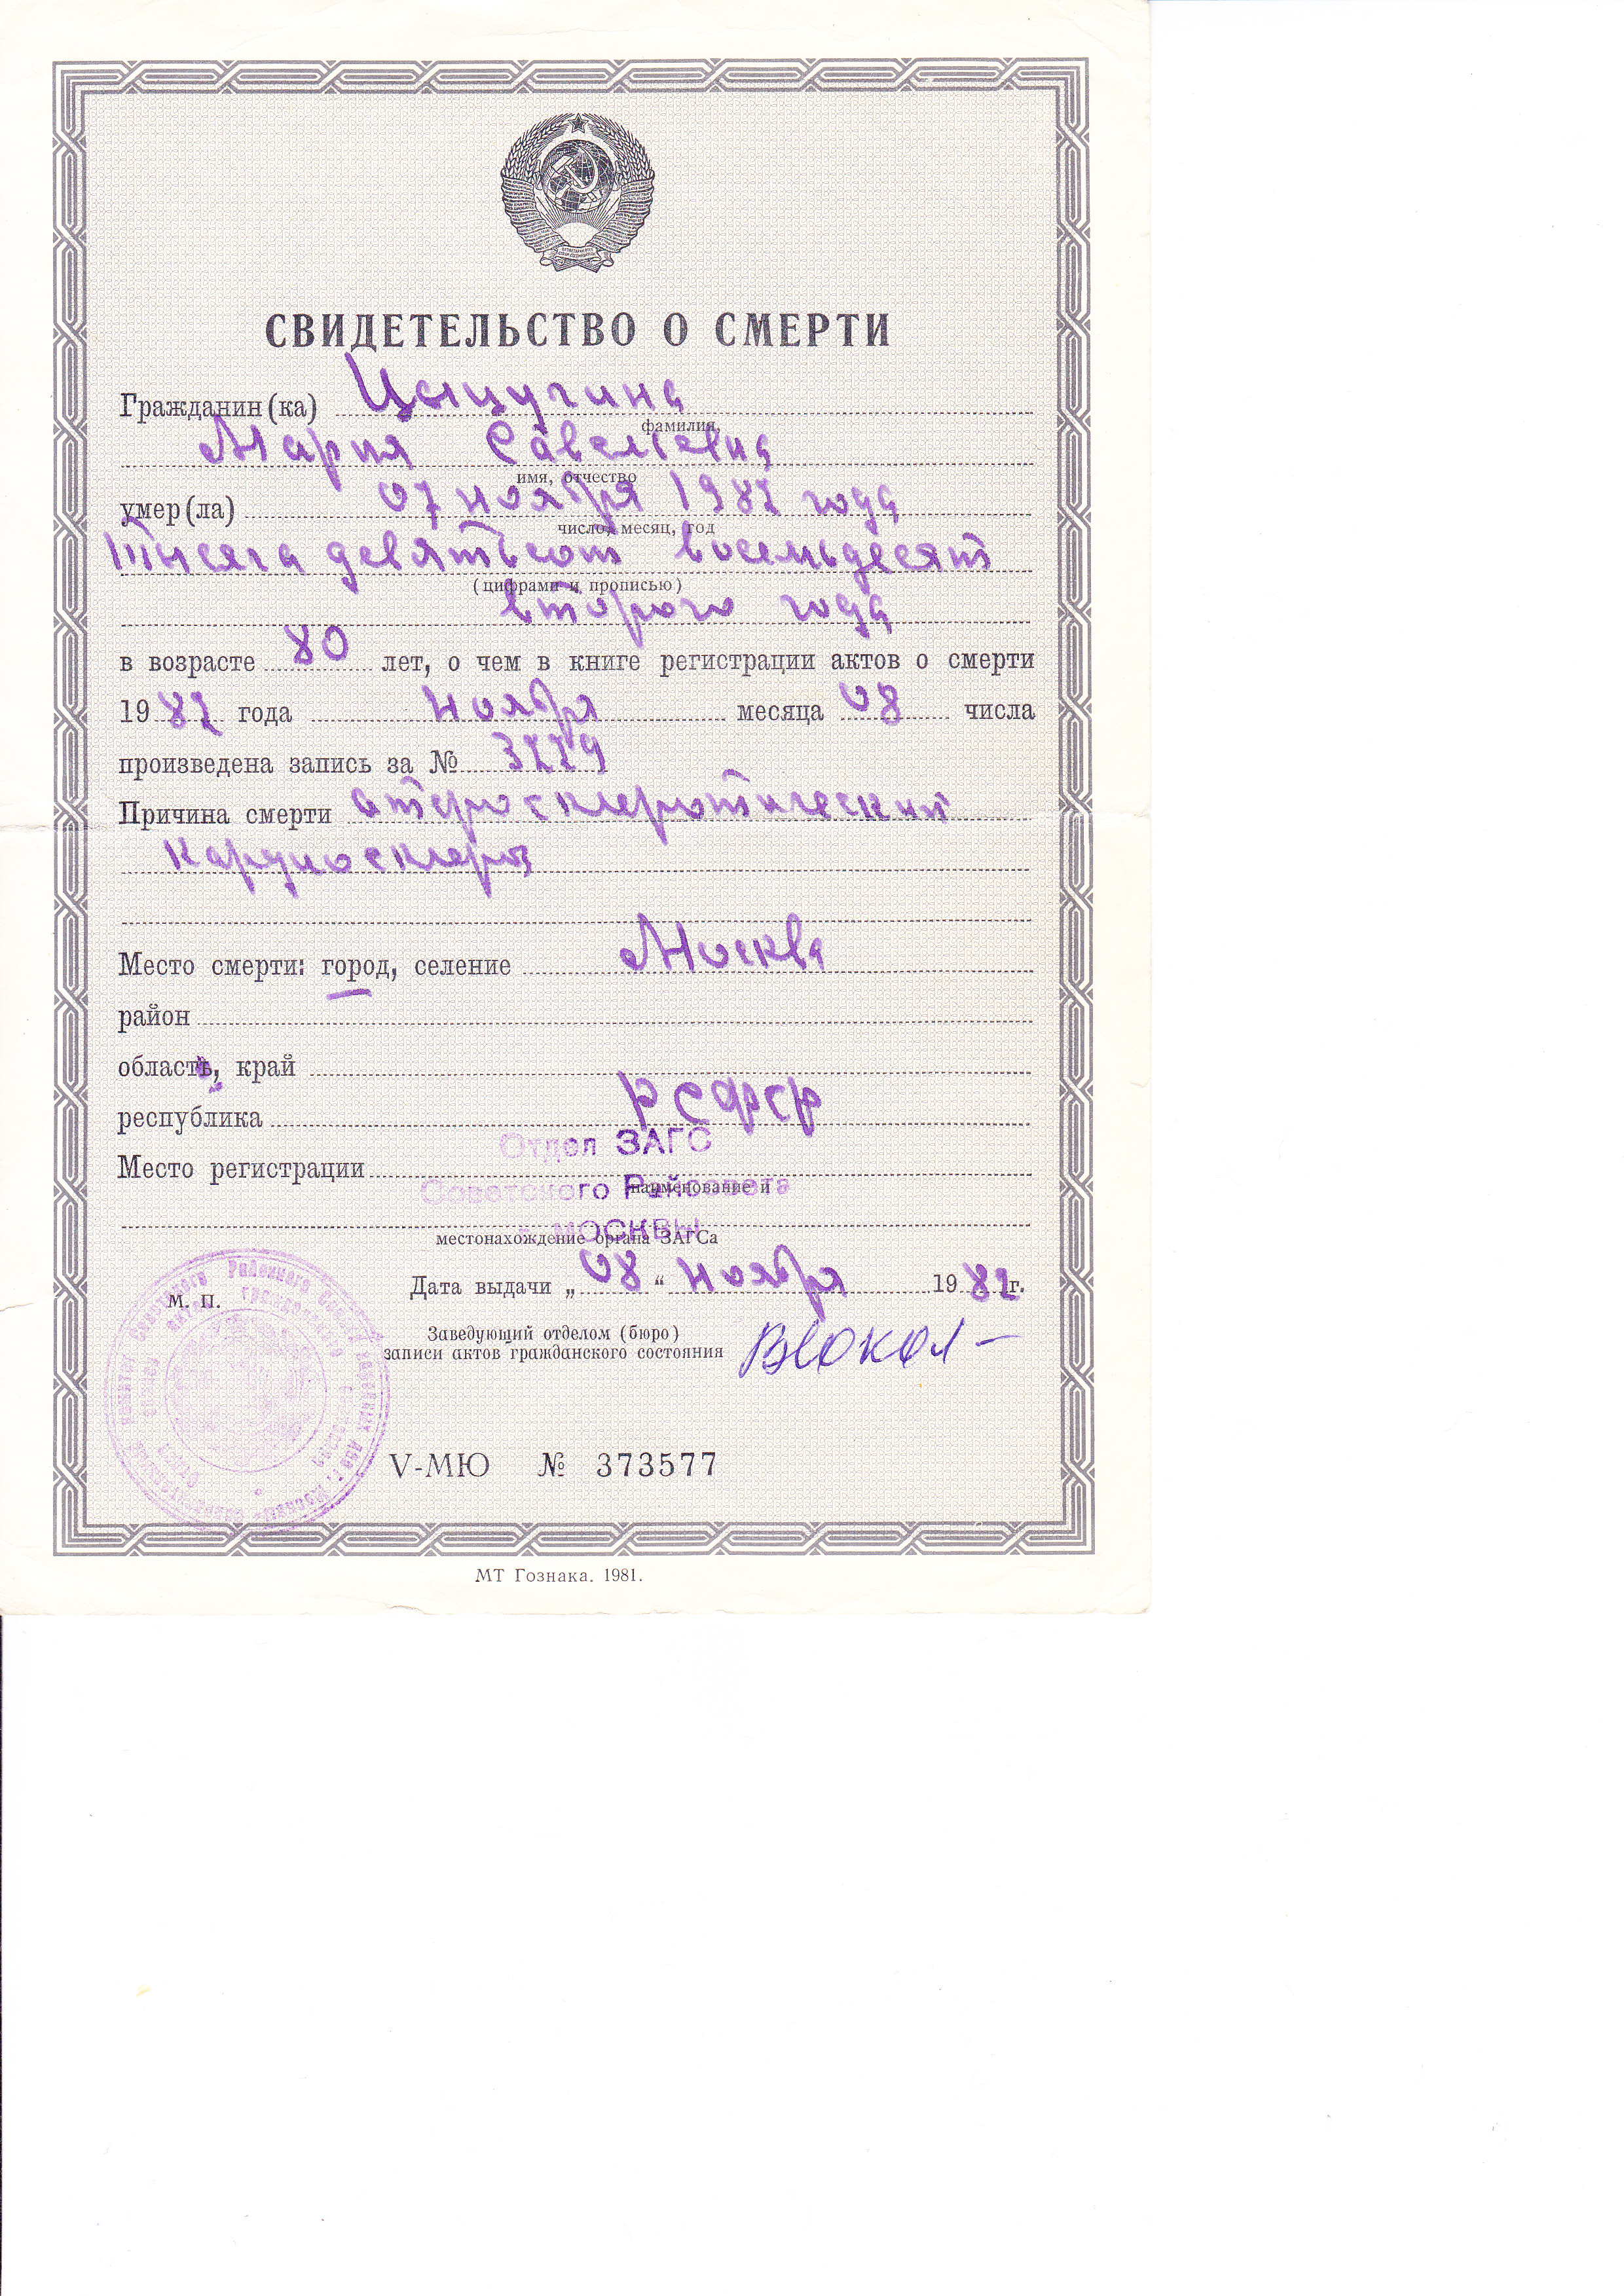 СВИДЕТЕЛЬСТВО О СМЕРТИ
Гражданин(ка) Цыцугина
фамилия,
Мария Савельевна
имя, отчество
умер(ла) 07 ноября 1982 года
число, месяц, год
тысяча девятьсот восемьдесят
(цифрами и прописью)
второго года
в возрасте 80 лет, о чем в книге регистрации актов о смерти
1982 года ноября месяца 08 числа
произведена запись за № 3229
Причина смерти атеросклеротический
кардиосклероз
Место смерти: город, селение Москва
район
область, край
республика РСФСР
Отдел ЗАГС
Место регистрации
Советского Райсовета
наименование и
г. МОСКВЫ
местонахождение органа ЗАГСа
Дата выдачи „08“ ноября 1982 г.
М. П.
Заведующий отделом (бюро)
записи актов гражданского состояния
V-МЮ № 373577
МТ Гознака. 1981.